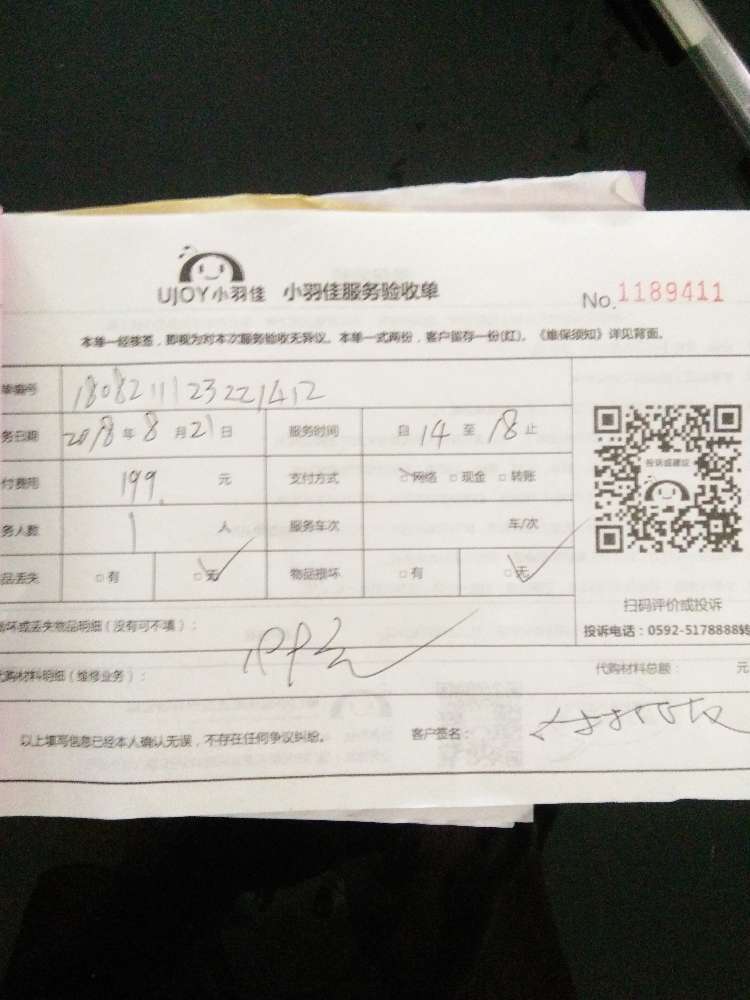 UJOY小羽佳 小羽佳服务验收单 No.1189411
本单一经核签，即视为对本次服务验收无异议。本单一式两份，客户留存一份(红)。《维保须知》详见背面。
单编号 1808211123221412
务日期 2018年8月21日 服务时间 自14至18止
付费用 199 元 支付方式 □网络 □现金 □转账
务人数 1 人 服务车次 车/次
品丢失 □有 □无 物品损坏 □有 □无
投诉或建议
扫码评价或投诉
投诉电话：0592-5178888转
损坏或丢失物品明细（没有可不填）：
代购材料明细（维修业务）： 代购材料总额： 元
以上填写信息已经本人确认无误，不存在任何争议纠纷。 客户签名：